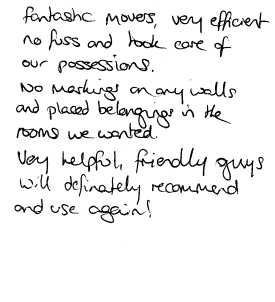 fantastic movers, very efficient
no fuss and took care of
our possessions.
No markings on any walls
and placed belongings in the
rooms we wanted.
Very helpful, friendly guys
will definately recommend
and use again!